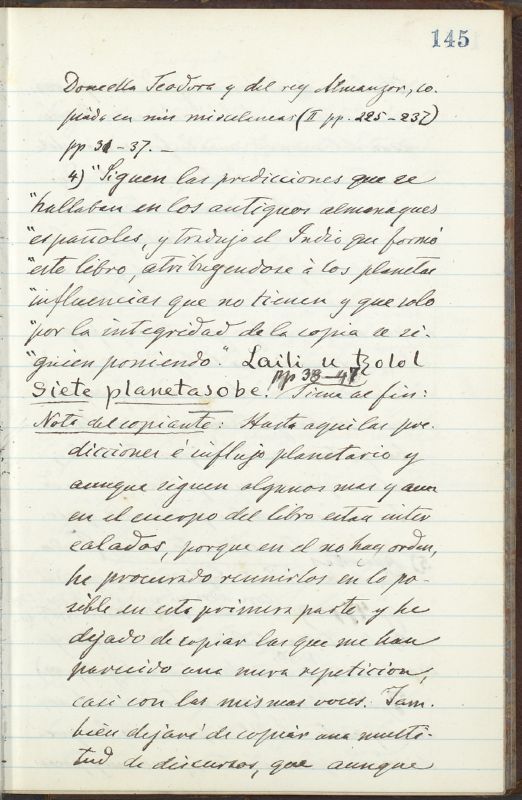 145
Doncella Teodora y del rey Almanzor, co-
piada en mis misceláneas (II pp. 225-237)
pp 31-37. —
4) "Siguen las predicciones que se
"hallaban en los antiguos almanaques
"españoles, y tradujo el Indio que formó
"este libro, atribuyendose à los planetas
"influencias que no tienen y que solo
"por la integridad de la copia se si-
"guien poniendo." Laili u ɔolol
Siete planetasobe. pp 38-47 Tiene al fin:
Nota del copiante: Hasta aqui las pre-
dicciones é influjo planetario y
aunque siguen algunos mas y aun
en el cuerpo del libro estan inter
calados, porque en el no hay orden,
he procurado reunirlos en lo po-
sible en esta primera parte y he
dejado de copiar las que me han
parecido una mera repeticion,
casi con las mismas voces. Tam-
bien dejaré de copiar una multi-
tud de discursos, que aunque